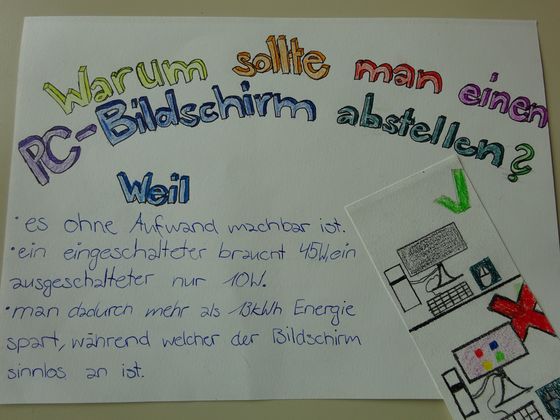 Warum sollte man einen
PC-Bildschirm abstellen?
Weil
• es ohne Aufwand machbar ist.
• ein eingeschalteter braucht 45W, ein
ausgeschalteter nur 10W.
• man dadurch mehr als 13kWh Energie
spart, während welcher der Bildschirm
sinnlos an ist.